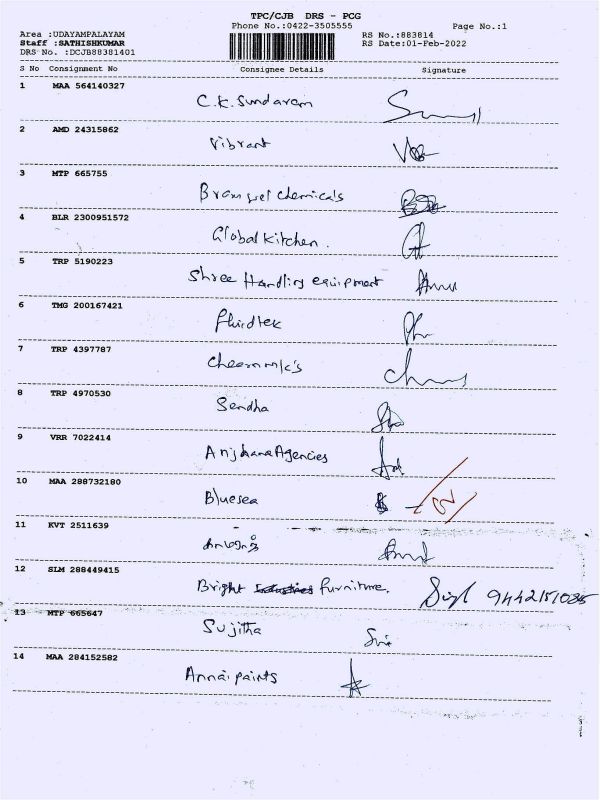 TPC/CJB DRS - PCG
Phone No.:0422-3505555 Page No.:1
Area :UDAYAMPALAYAM RS No.:883814
Staff :SATHISHKUMAR RS Date:01-Feb-2022
DRS No. :DCJB88381401
S No Consignment No Consignee Details Signature
1 MAA 564140327
C.K. Sundaram
2 AMD 24315862
Vibrant
3 MTP 665755
chemicals
4 BLR 2300951572
Global kitchen.
5 TRP 5190223
Shree Handling equipment
6 TMG 200167421
fluidtek
7 TRP 4397787
8 TRP 4970530
Sendha
9 VRR 7022414
Anjhana Agencies
10 MAA 288732180
Bluesea
11 KVT 2511639
12 SLM 288449415
Bright furniture. 9442151085
13 MTP 665647
Sujitha
14 MAA 284152582
Annai paints